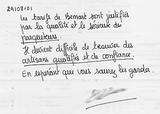 29108101
Les tarifs de Bemart sont justifiés
par la qualité et le sérieux des
prestations.
Il devient difficile de trouver des
artisans qualifiés et de confiance.
En espérant que vous saurez les garder.